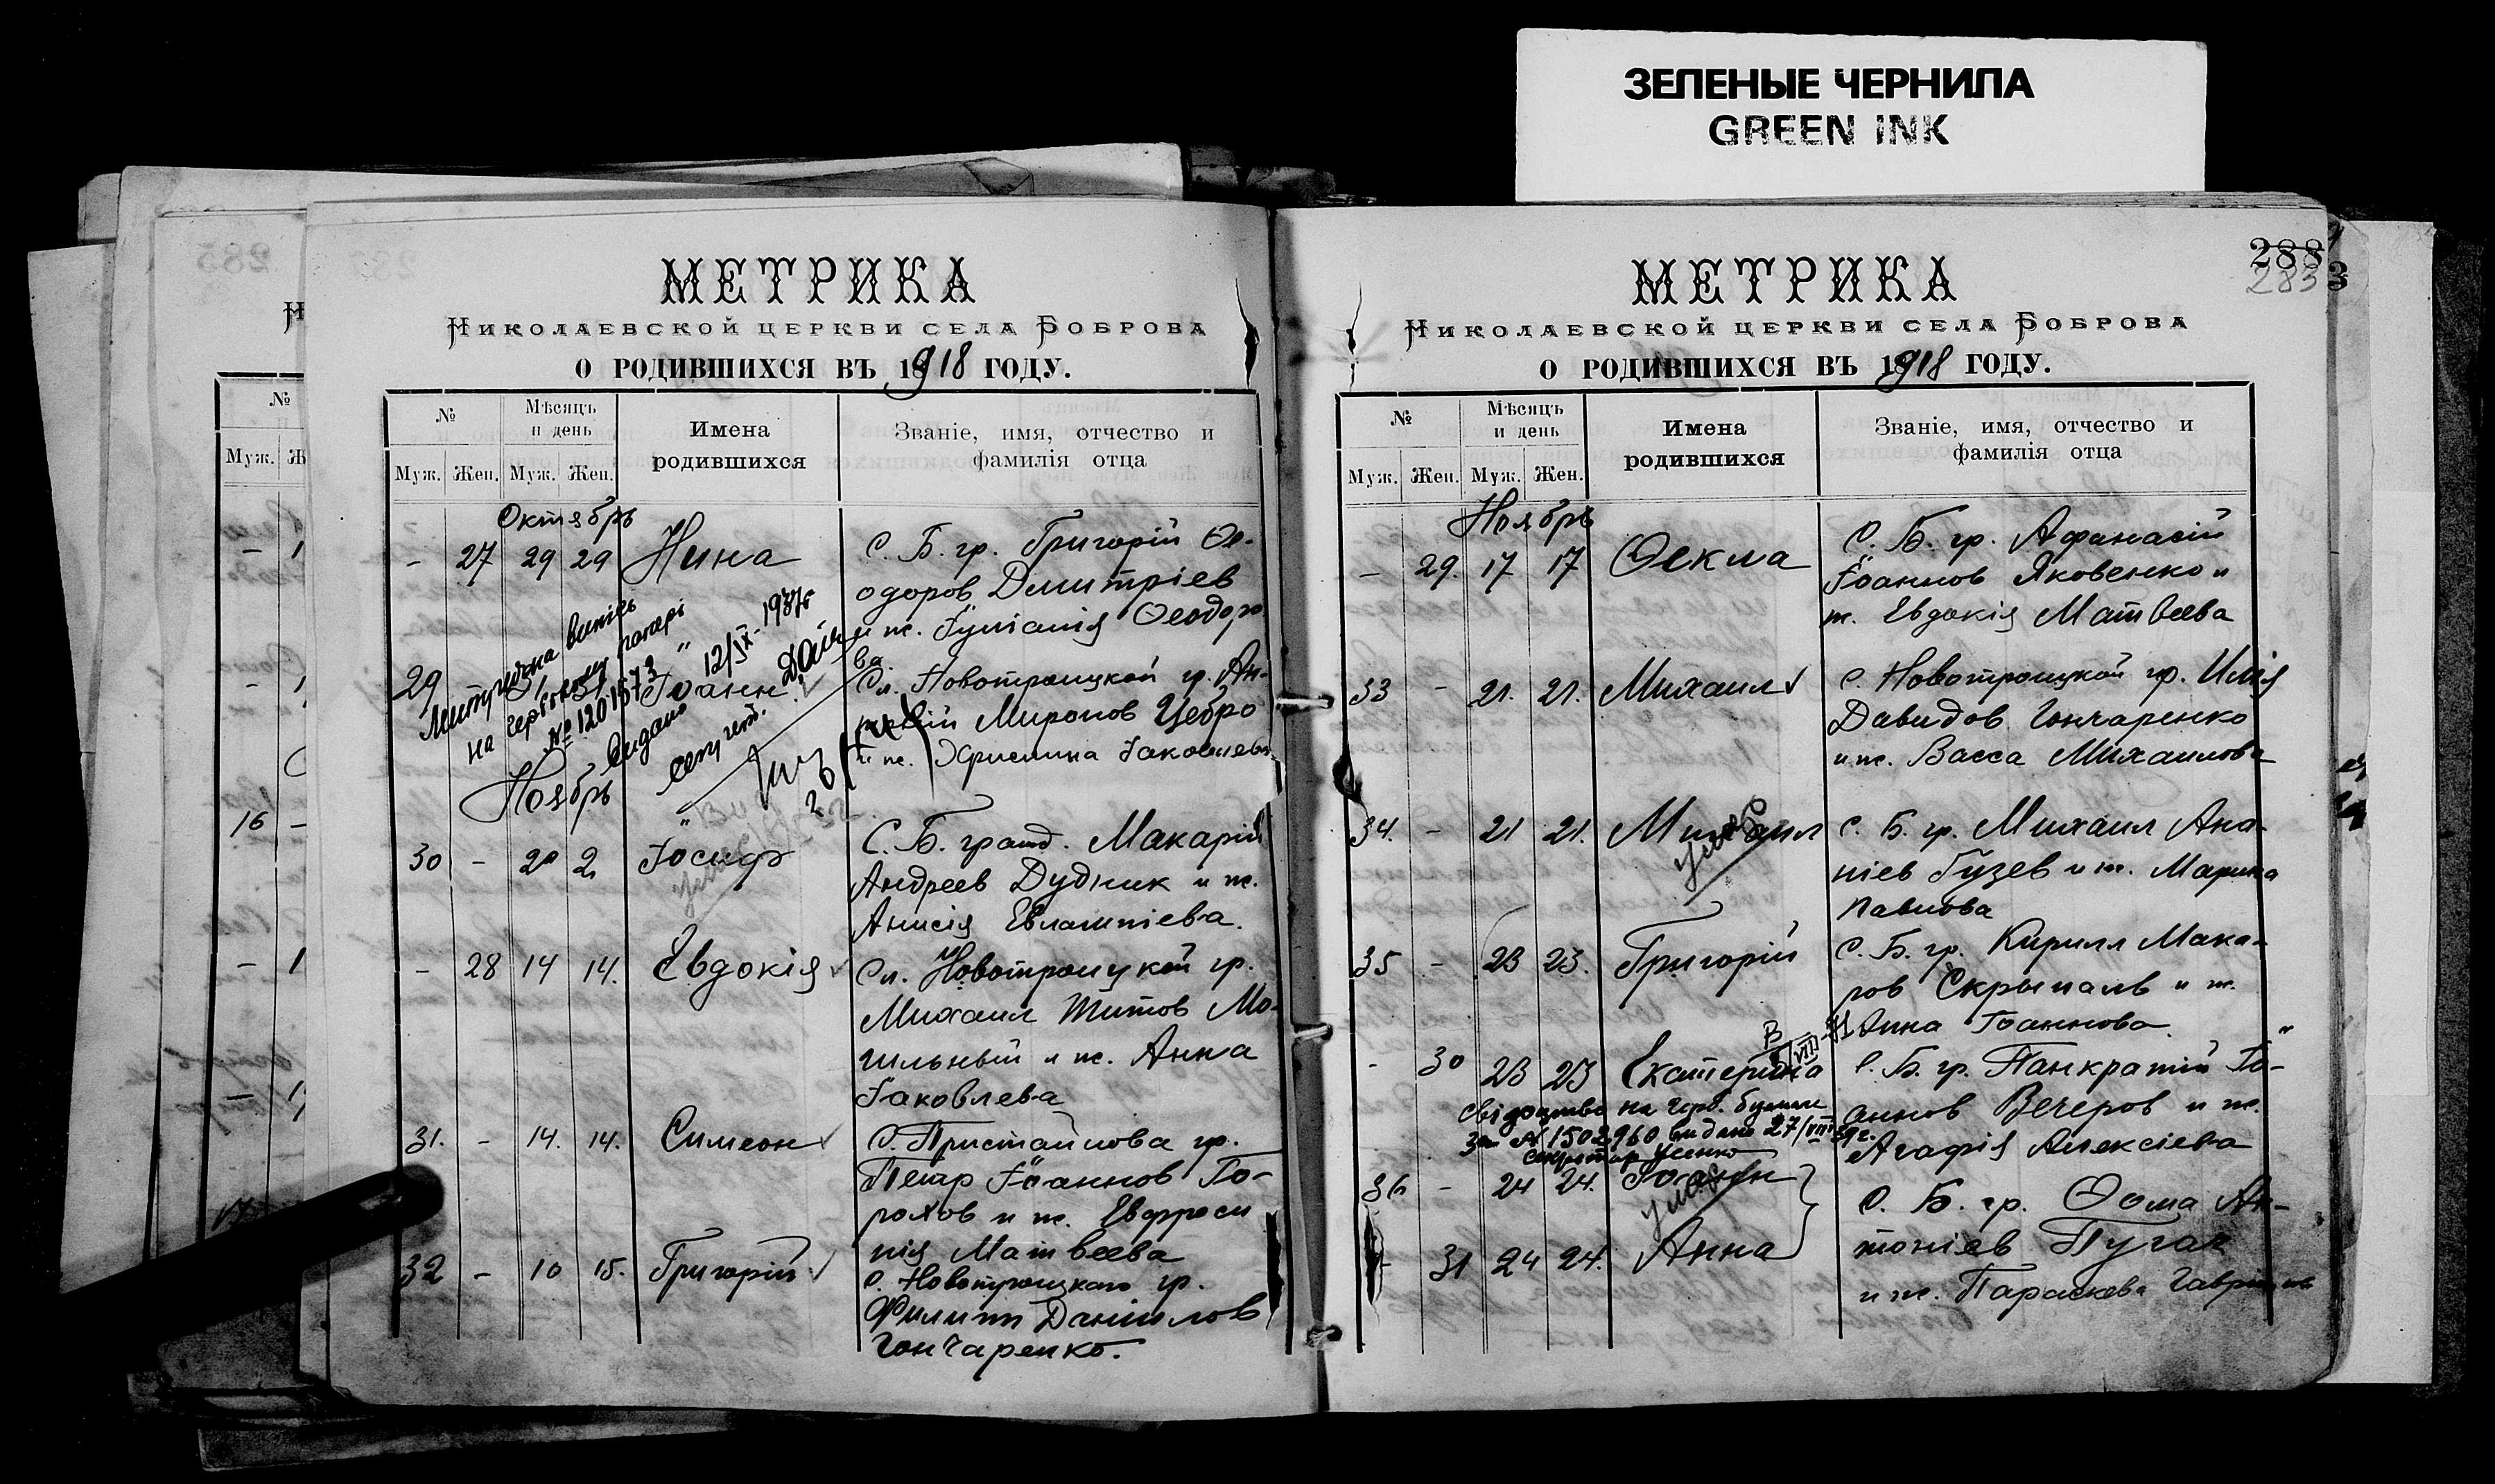 ЗЕЛЕНЫЕ ЧЕРНИЛА
GREEN INK
285
МЕТРИКА
НИКОЛАЕВСКОЙ ЦЕРКВИ СЕЛА БОБРОВА
О РОДИВШИХСЯ ВЪ 1918 ГОДУ.
№
Мѣсяцъ и день
Имена родившихся
Званіе, имя, отчество и фамилія отца
Муж. Жен. Муж. Жен.
Октябрь
- 27 29 29 Нина
С. Б. гр. Григорій Ѳе-
одоров Дмитріев
и ж. Іуліанія Ѳеодоро
ва.
29 Іоанн
Сл. Новотроицкой гр. Ан-
Миронов Цебро
и ж. Христина Іаковлева
витяг
на гербовому папері
№ 1201573 " 12/IX-1937г
видано
Ноябрь
30 - 2 2 Іосиф
умер
С. Б. гражд. Макарій
Андреев Дудник и ж.
Анисія Евлампіева.
- 28 14 14. Евдокія
Сл. Новотроицкой гр.
Михаил Титов Мо-
гильный и ж. Анна
Іаковлева
31. - 14. 14. Симеон
С. Пристайлова гр.
Петр Іоаннов Го-
рохов и ж. Евфроси
нія Матвеева
32 - 10 15. Григорій
С. Новотроицкаго гр.
Филипп Даниилов
Гончаренко.
288
283
3
МЕТРИКА
НИКОЛАЕВСКОЙ ЦЕРКВИ СЕЛА БОБРОВА
О РОДИВШИХСЯ ВЪ 1918 ГОДУ.
№
Мѣсяцъ и день
Имена родившихся
Званіе, имя, отчество и фамилія отца
Муж. Жен. Муж. Жен.
Ноябрь
- 29. 17 17 Ѳекла
С. Б. гр. Афанасій
Іоаннов Яковенко и
ж. Евдокія Матвеева
33 - 21. 21. Михаил
С. Новотроицкой гр. Илія
Давидов Гончаренко
и ж. Васса Михаилова
34. - 21 21. Михаил
умер
С. Б. гр. Михаил Ана-
ніев Гузев и ж. Марина
Павлова
35 - 23 23. Григорій
С. Б. гр. Кирилл Мака-
ров Скрыпаль и ж.
Анна Іоаннова
- 30 23 23 Екатерина
С. Б. гр. Панкратий Іо-
аннов Вечеров и ж.
Агафія Алексіева
свідоцтво на герб. бумазі
за № 1502960 видано 27/VIII
секретар
36 - 24 24. Іоанн
умер
- 31 24 24. Анна
С. Б. гр. Ѳома Ан-
тоніев Пугач
и ж. Параскева